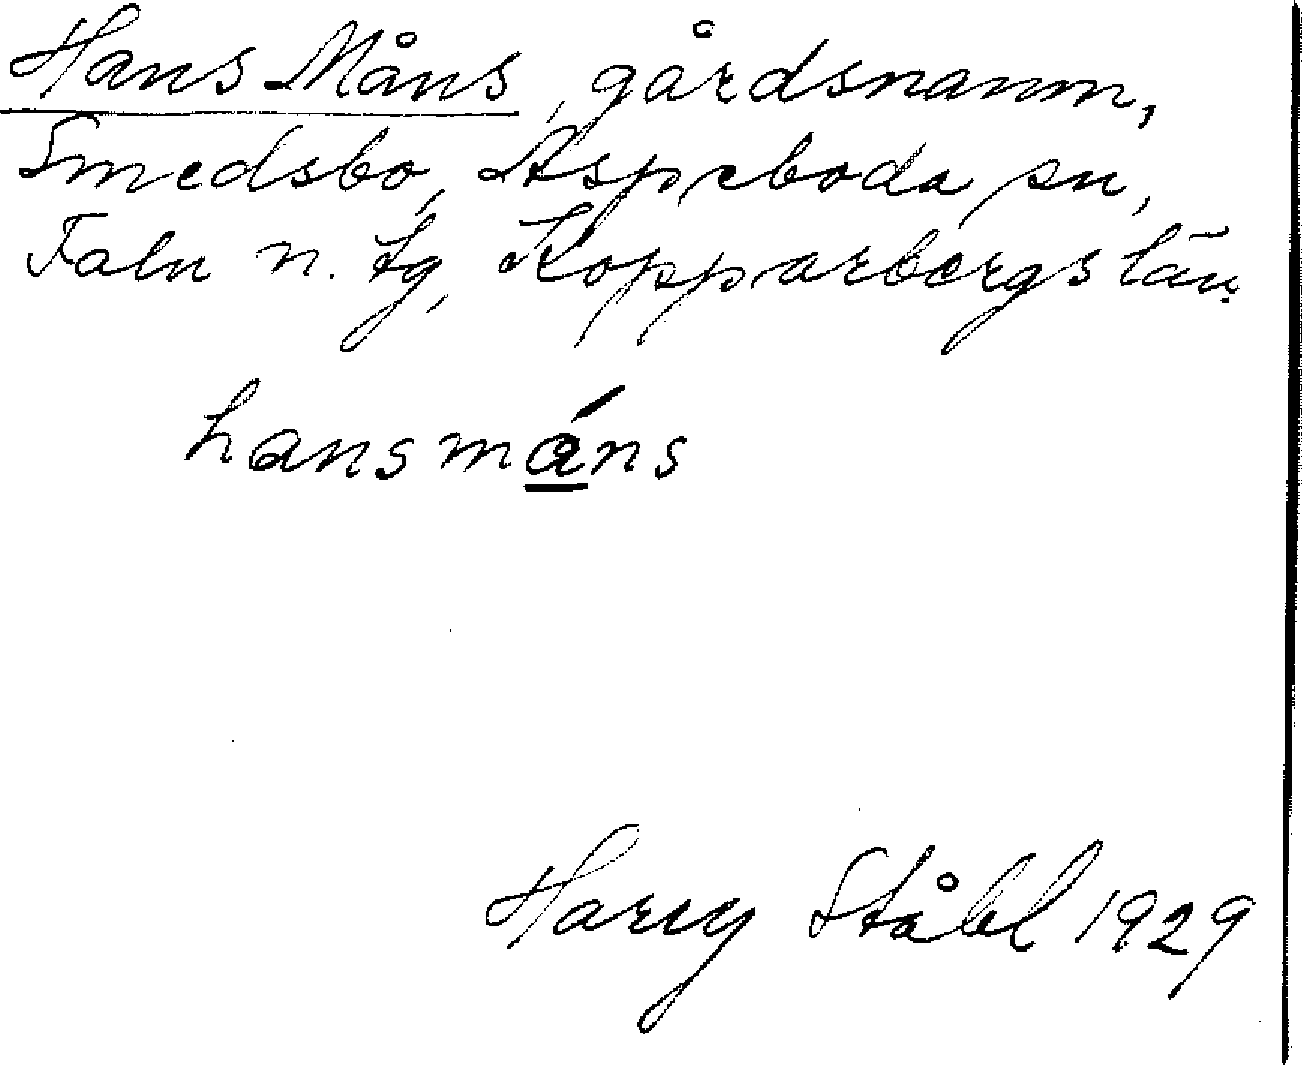 Hans Måns, gårdsnamn,
Smedsbo, Aspeboda sn,
Falu n. tg, Kopparbergs län.
hansmáns
Harry Ståhl 1929